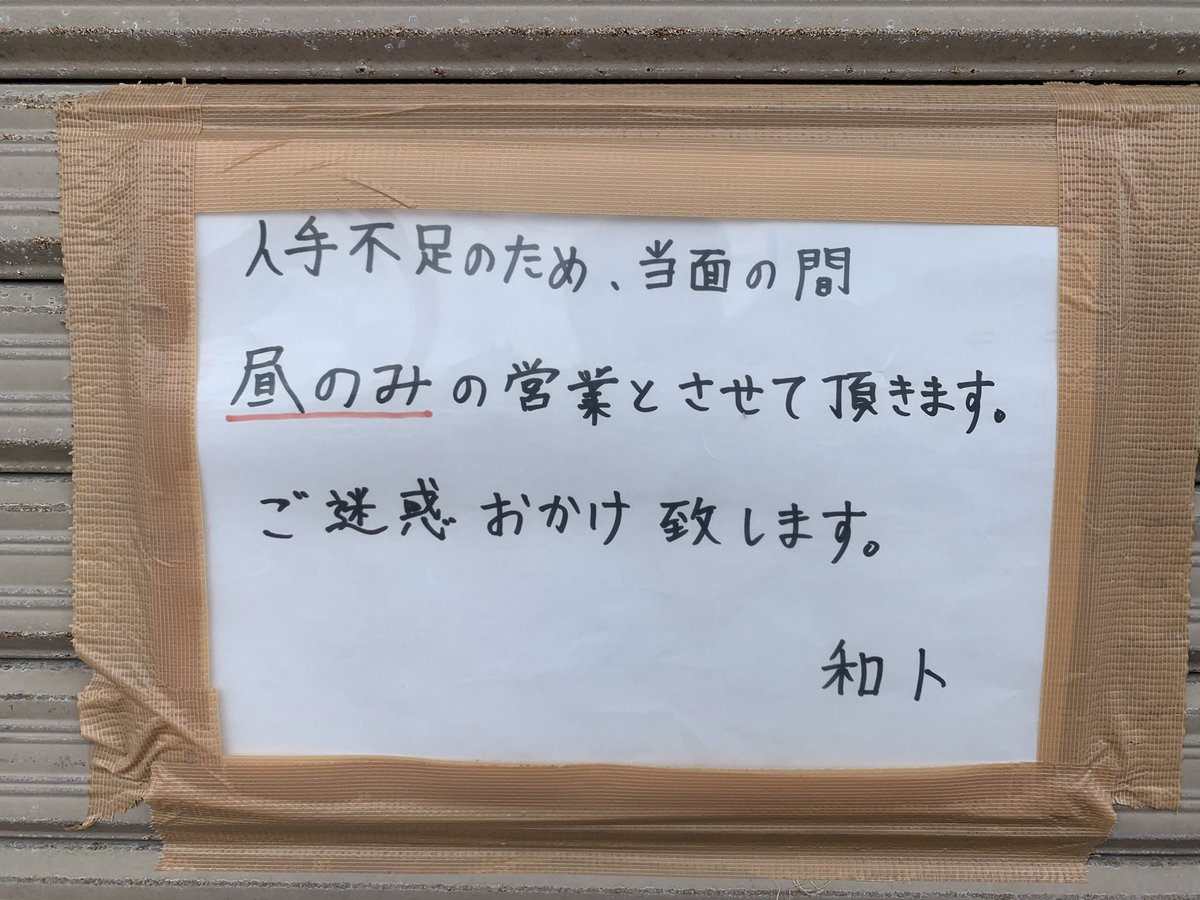 人手不足のため、当面の間
昼のみの営業とさせて頂きます。
ご迷惑おかけ致します。
和ト